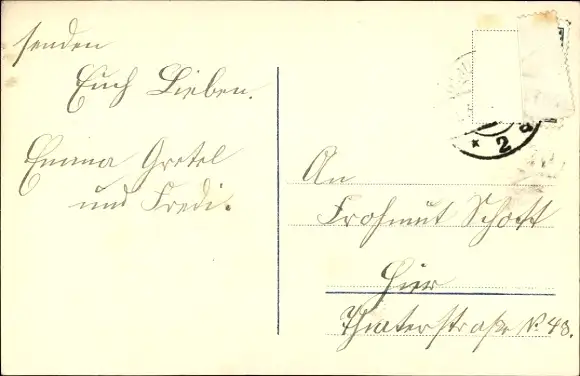 senden
Euch Lieben.
Emma Gretel
und Fredi.
* 2 B
An
Frohmut Schott
Hier
Theaterstraße N. 48.